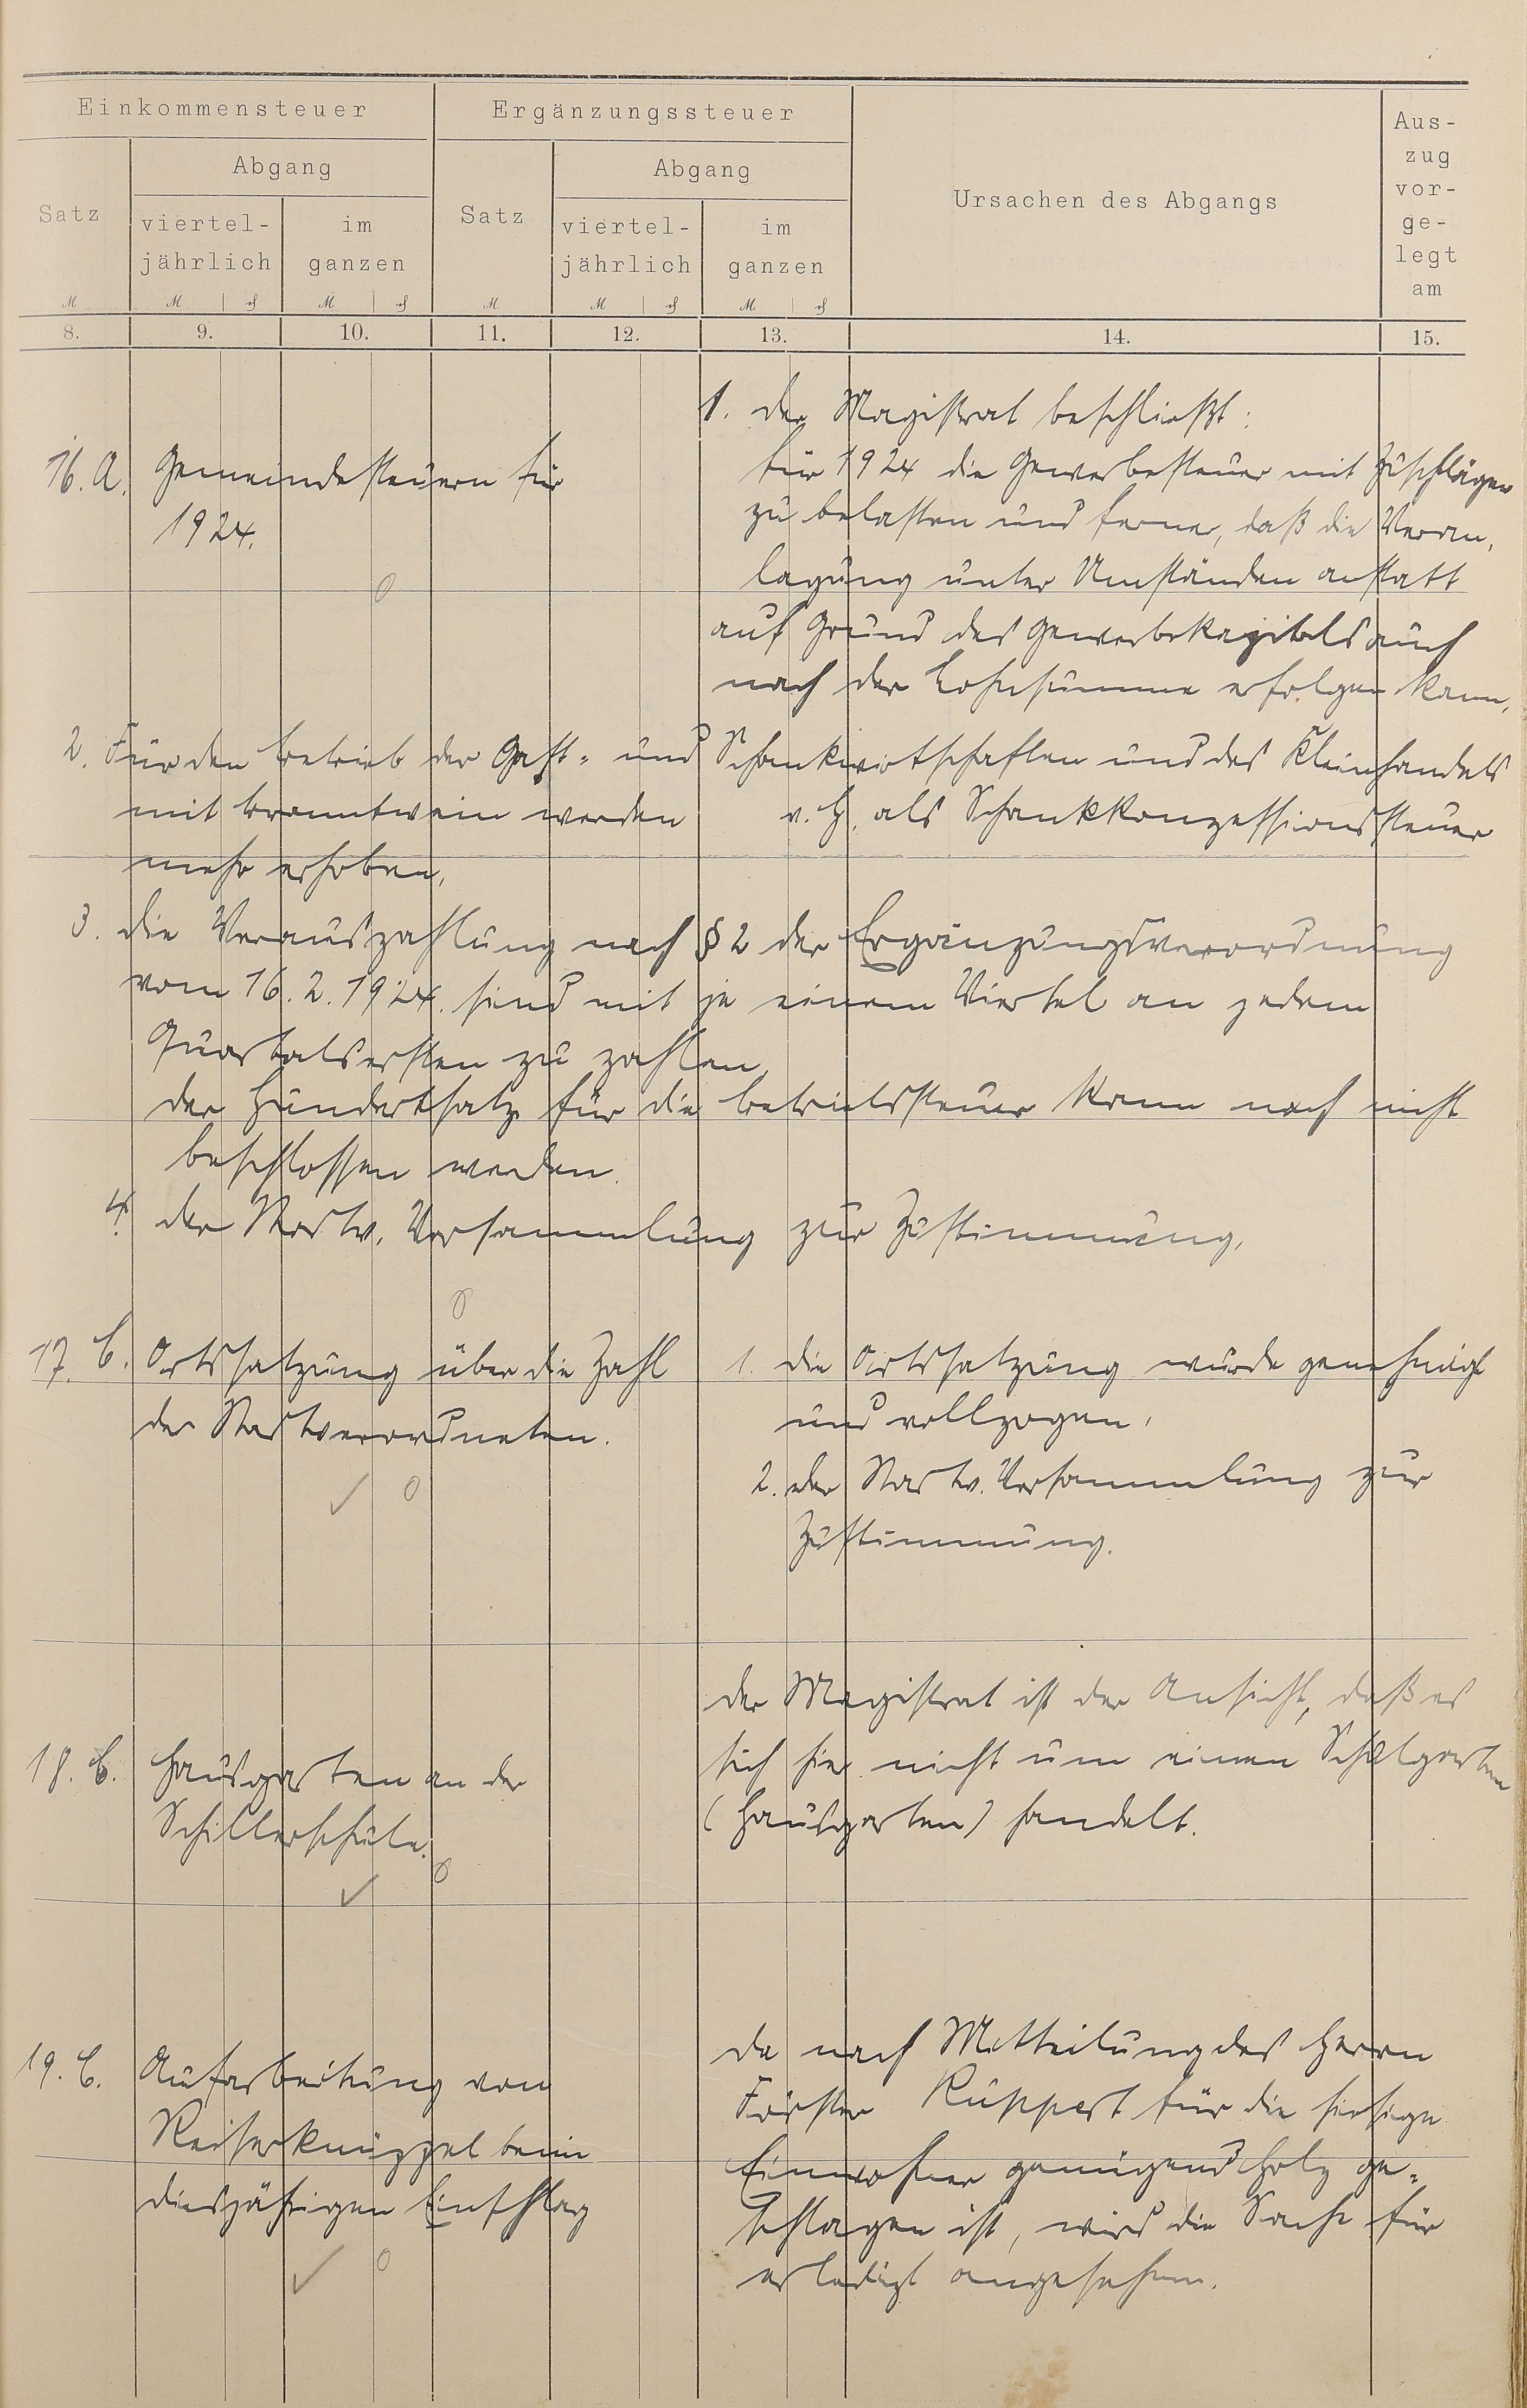 Einkommensteuer
Ergänzungssteuer
Ursachen des Abgangs
Aus-
zug
vor-
ge-
legt
am
Satz
Abgang
viertel-
jährlich
im
ganzen
Satz
Abgang
viertel-
jährlich
im
ganzen
M M ₰ M ₰ M M ₰ M ₰
8. 9. 10. 11. 12. 13. 14. 15.
16. A. Gemeindesteuern für
1924.
1. Der Magistrat beschließt:
für 1924 die Gewerbesteuer mit Zuschlägen
zu belasten und ferner, daß die Veran-
lagung unter Umständen anstatt
auf Grund des Gewerbekapitals auch
nach der Lohnsumme erfolgen kann.
2. Für den Betrieb der Gast- und Schankwirtschaften und des Kleinhandels
mit Branntwein werden v. H. als Schankkonzessionssteuer
mehr erhoben.
3. Die Vorauszahlung nach § 2 der Ergänzungsverordnung
vom 16.2.1924. sind mit je einem Viertel an jedem
Quartalsersten zu zahlen
Der Hundertsatz für die Betriebssteuer kann noch nicht
beschlossen werden.
4. Der Stadtv. Versammlung zur Zustimmung.
17. C. Ortssatzung über die Zahl
der Stadtverordneten.
1. Die Ortssatzung wurde genehmigt
und vollzogen.
2. Der Stadtv. Versammlung zur
Zustimmung.
18. C. Hausgarten an der
Schillerschule.
Der Magistrat ist der Ansicht, daß es
sich hier nicht um einen Schulgarten
(Hausgarten) handelt.
19. C. Aufarbeitung von
Reiserknüppel beim
diesjährigen Einschlag
Da nach Mitteilung des Herrn
Förster Ruppert für die hiesige
Einwohner genügend Holz ge-
schlagen ist, wird die Sache für
erledigt angesehen.